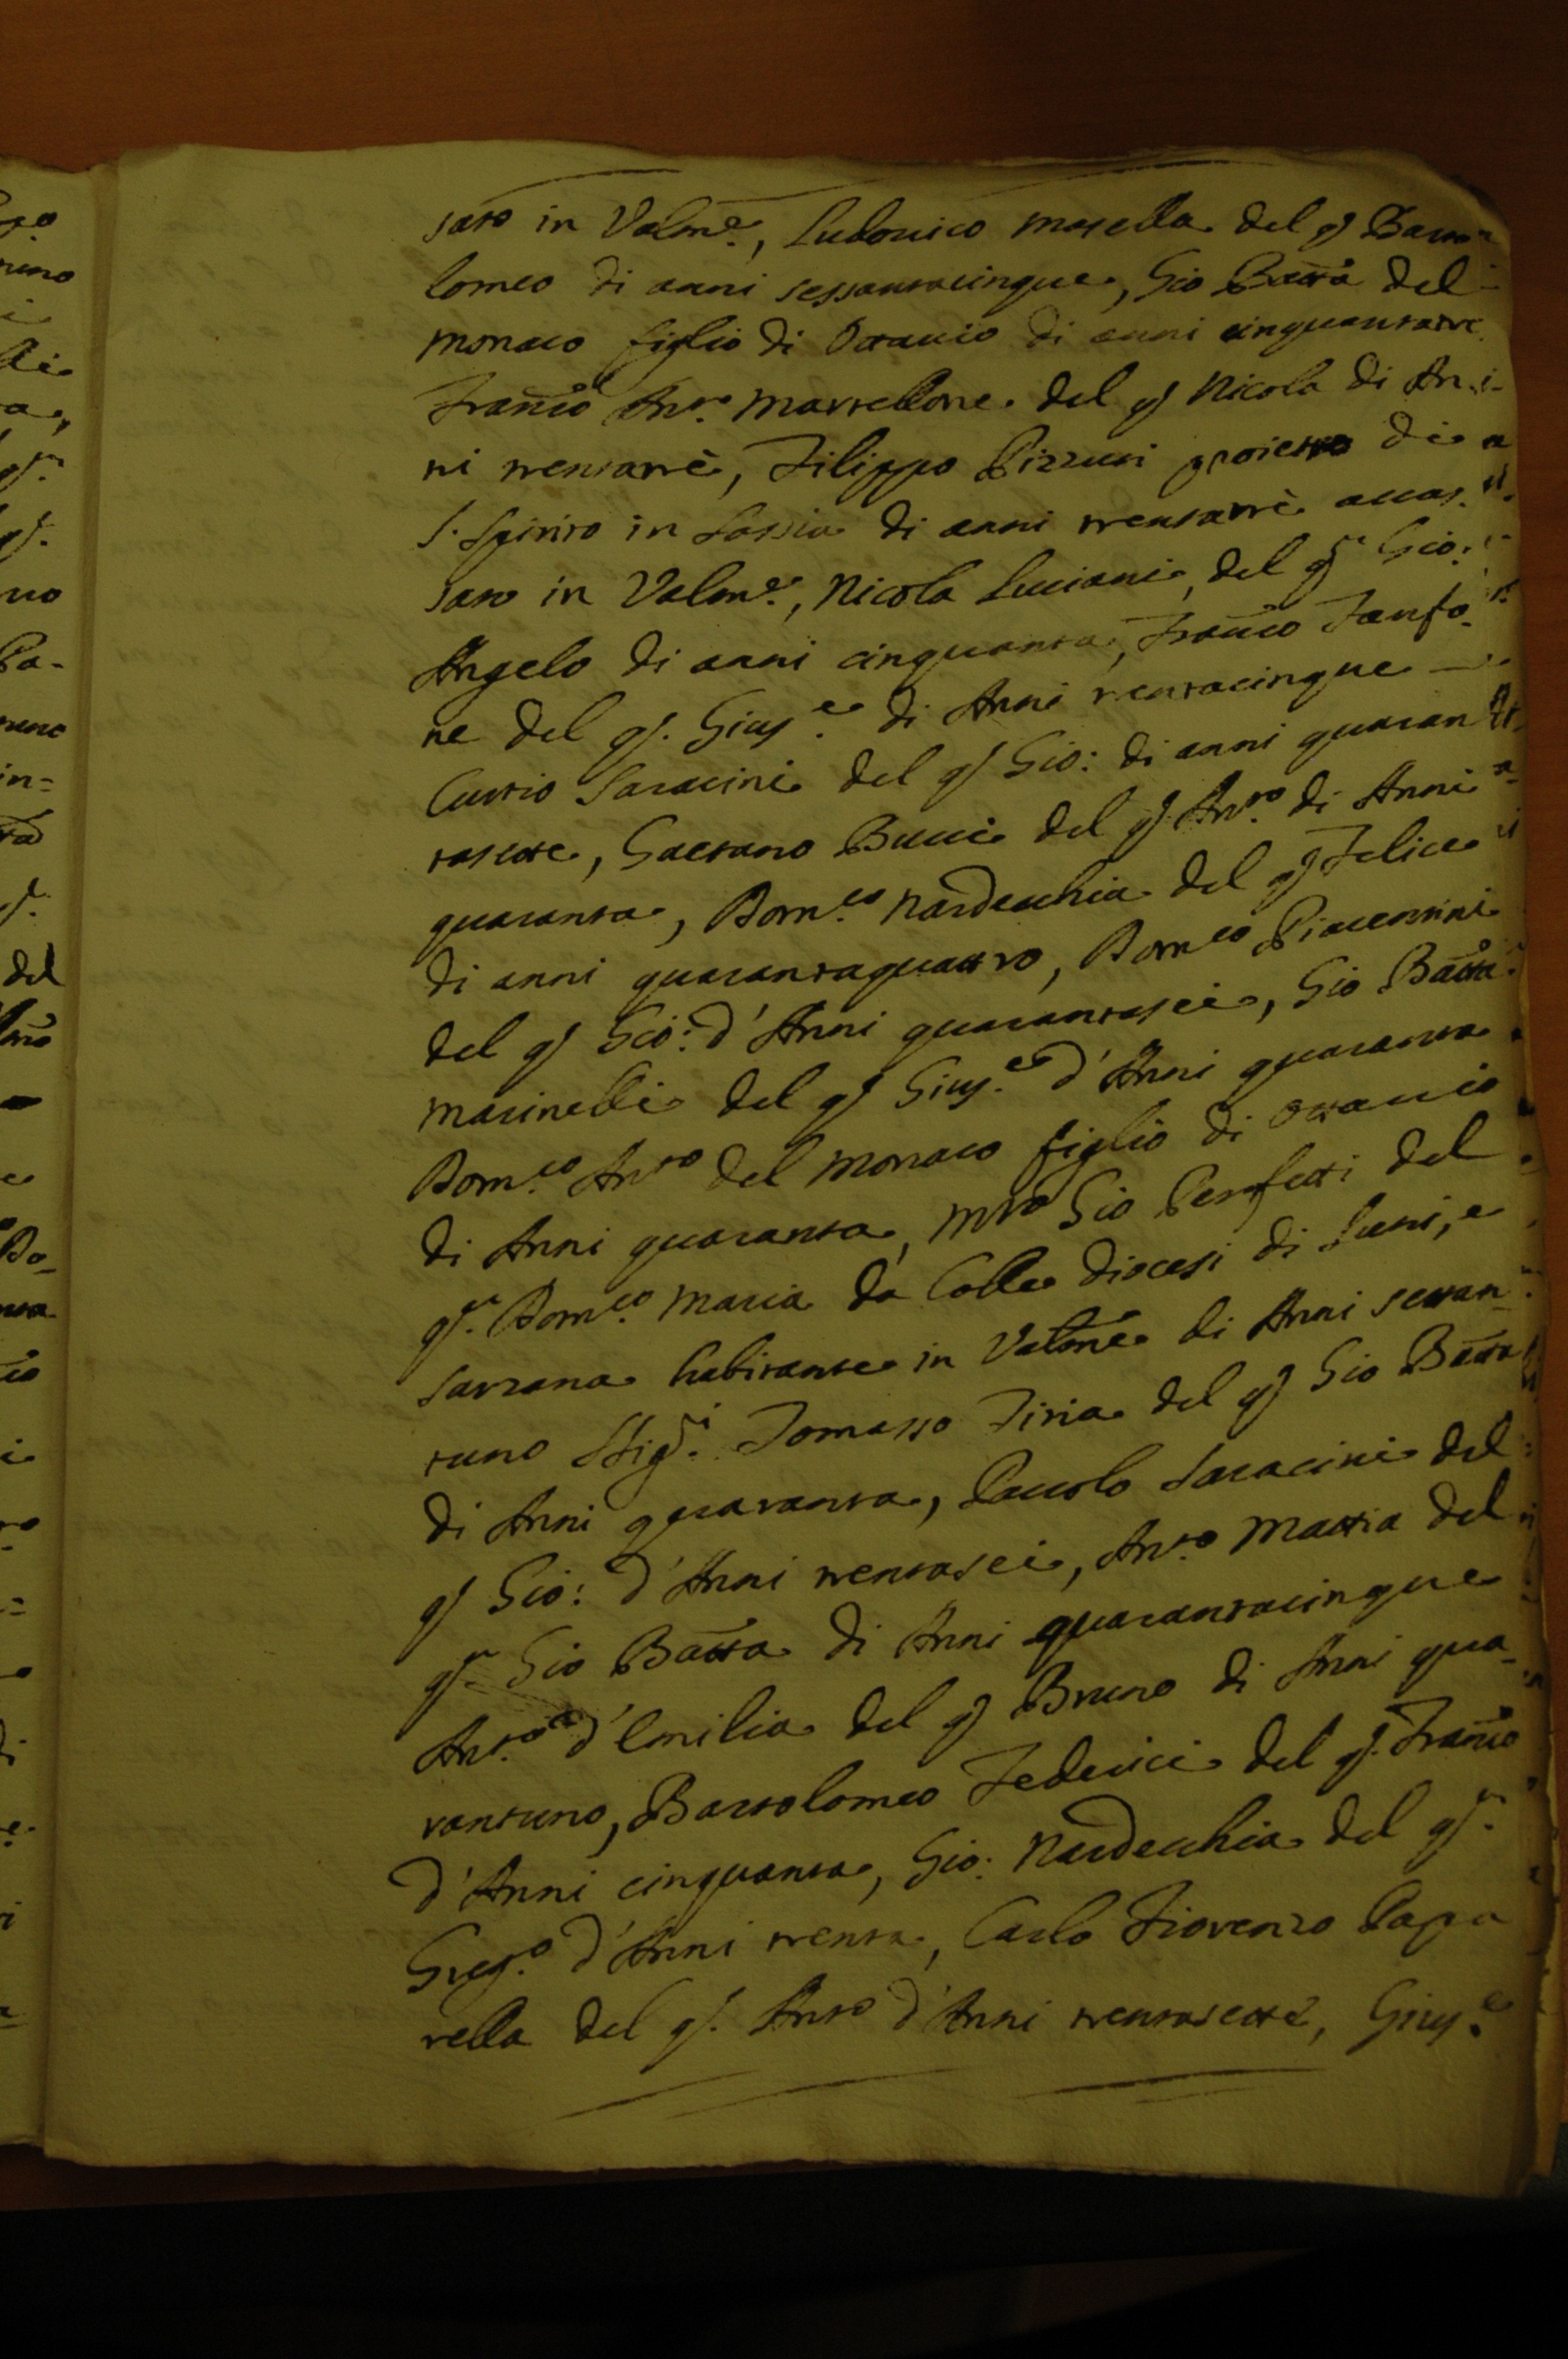 sato in Valm.e, Ludovico Masella del q Barto
lomeo di anni sessantacinque, Gio Batta del
Monaco figlio di Ottavio di anni cinquantatre
Franco Ant.o Martellone del q Nicola di An-
ni trentatrè, Filippo Pizzuti proietto di
S. Spirito in Sassia di anni trentatrè accas-
sato in Valm.e, Nicola Luciani del q.m Gio:
Angelo di anni cinquanta, Franco Fanfo-
ne del q. Gius.e di Anni trentacinque
Curtio Saracini del q Gio: di anni quaran
tasette, Gaetano Bucci del q Ant.o di Anni
quaranta, Dom.co Nardecchia del q Felice
di anni quarantaquattro, Dom.co Piacentini
del q Gio: d'Anni quarantasei, Gio Batta
Marinelli del q Gius.e d'Anni quaranta
Dom.co Ant.o del Monaco figlio di Ottavio
di Anni quaranta, Mro Gio Perfetti del
q.m Dom.co Maria da Colle Diocesi di Luni, e
Sarzana habitante in Valm.e di Anni settan
tuno Tomasso Tiria del q Gio Batta
di Anni quaranta, Paolo Saracini del
q Gio: d'Anni trentasei, Ant.o Mattia del
q.m Gio Batta di Anni quarantacinque
Ant.o d'Emilia del q Bruno di Anni qua
rantuno, Bartolomeo Federici del q. Franco
d'Anni cinquanta, Gio: Nardecchia del q.m
Greg.o d'Anni trenta, Carlo Fiorenzo Papa
rella del q. Ant.o d'Anni trentasette, Gius.e